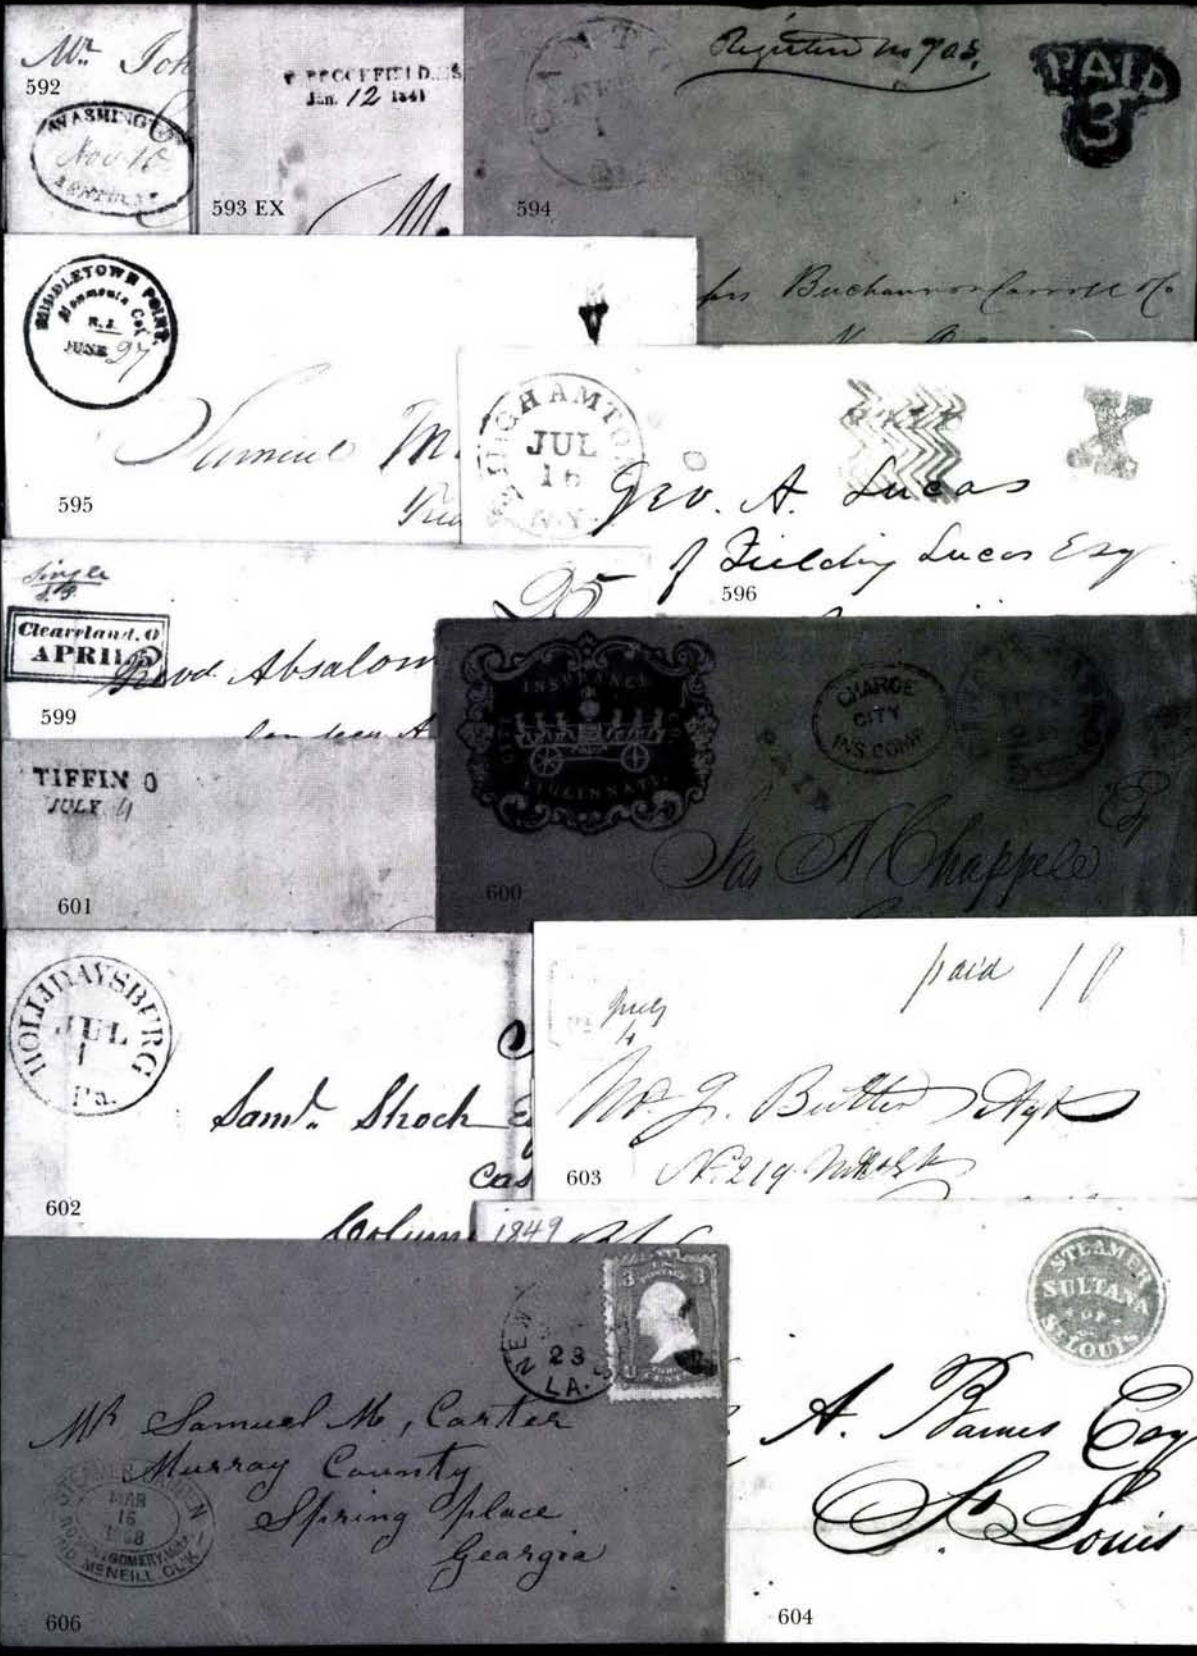 Mr. Joh
592
WASHINGT
Nov 10
KENTUCKY
BROOKFIELD
Jan. 12 1841
593 EX
M.
CANTO
Registered no 705.
PAID
3
594
Buchanan Carroll Co
MIDDLETOWN POINT.
Monmouth Co.
N.J.
JUNE 27
Samuel M
595
BINGHAMTON
JUL
16
N.Y.
X
Geo. A. Lucas
of Fielding Lucas Esq
596
Single
25
Cleaveland. O
APRIL 5
Revd. Absalom
599
INSURANCE
CITY
CO
CINCINNATI.
CHARGE
CITY
INS. COMP.
PAID
Jas A Chappele Esq
600
TIFFIN O
JULY 4
601
HOLLIDAYSBURG
JUL
1
Pa.
Saml. Shock E
Cas
602
Colum
paid 10
July
4
Mr. J. Butler
No. 219
603
1849
STEAMER
SULTANA
OF
ST. LOUIS
A. Barnes Esq
St. Louis
604
3 3
U.S. POSTAGE
NEW
23
LA.
Mr Samuel M, Carter
Murray County
Spring place
Georgia
MAR
16
1868
MONTGOMERY
MCNEILL CLK
606